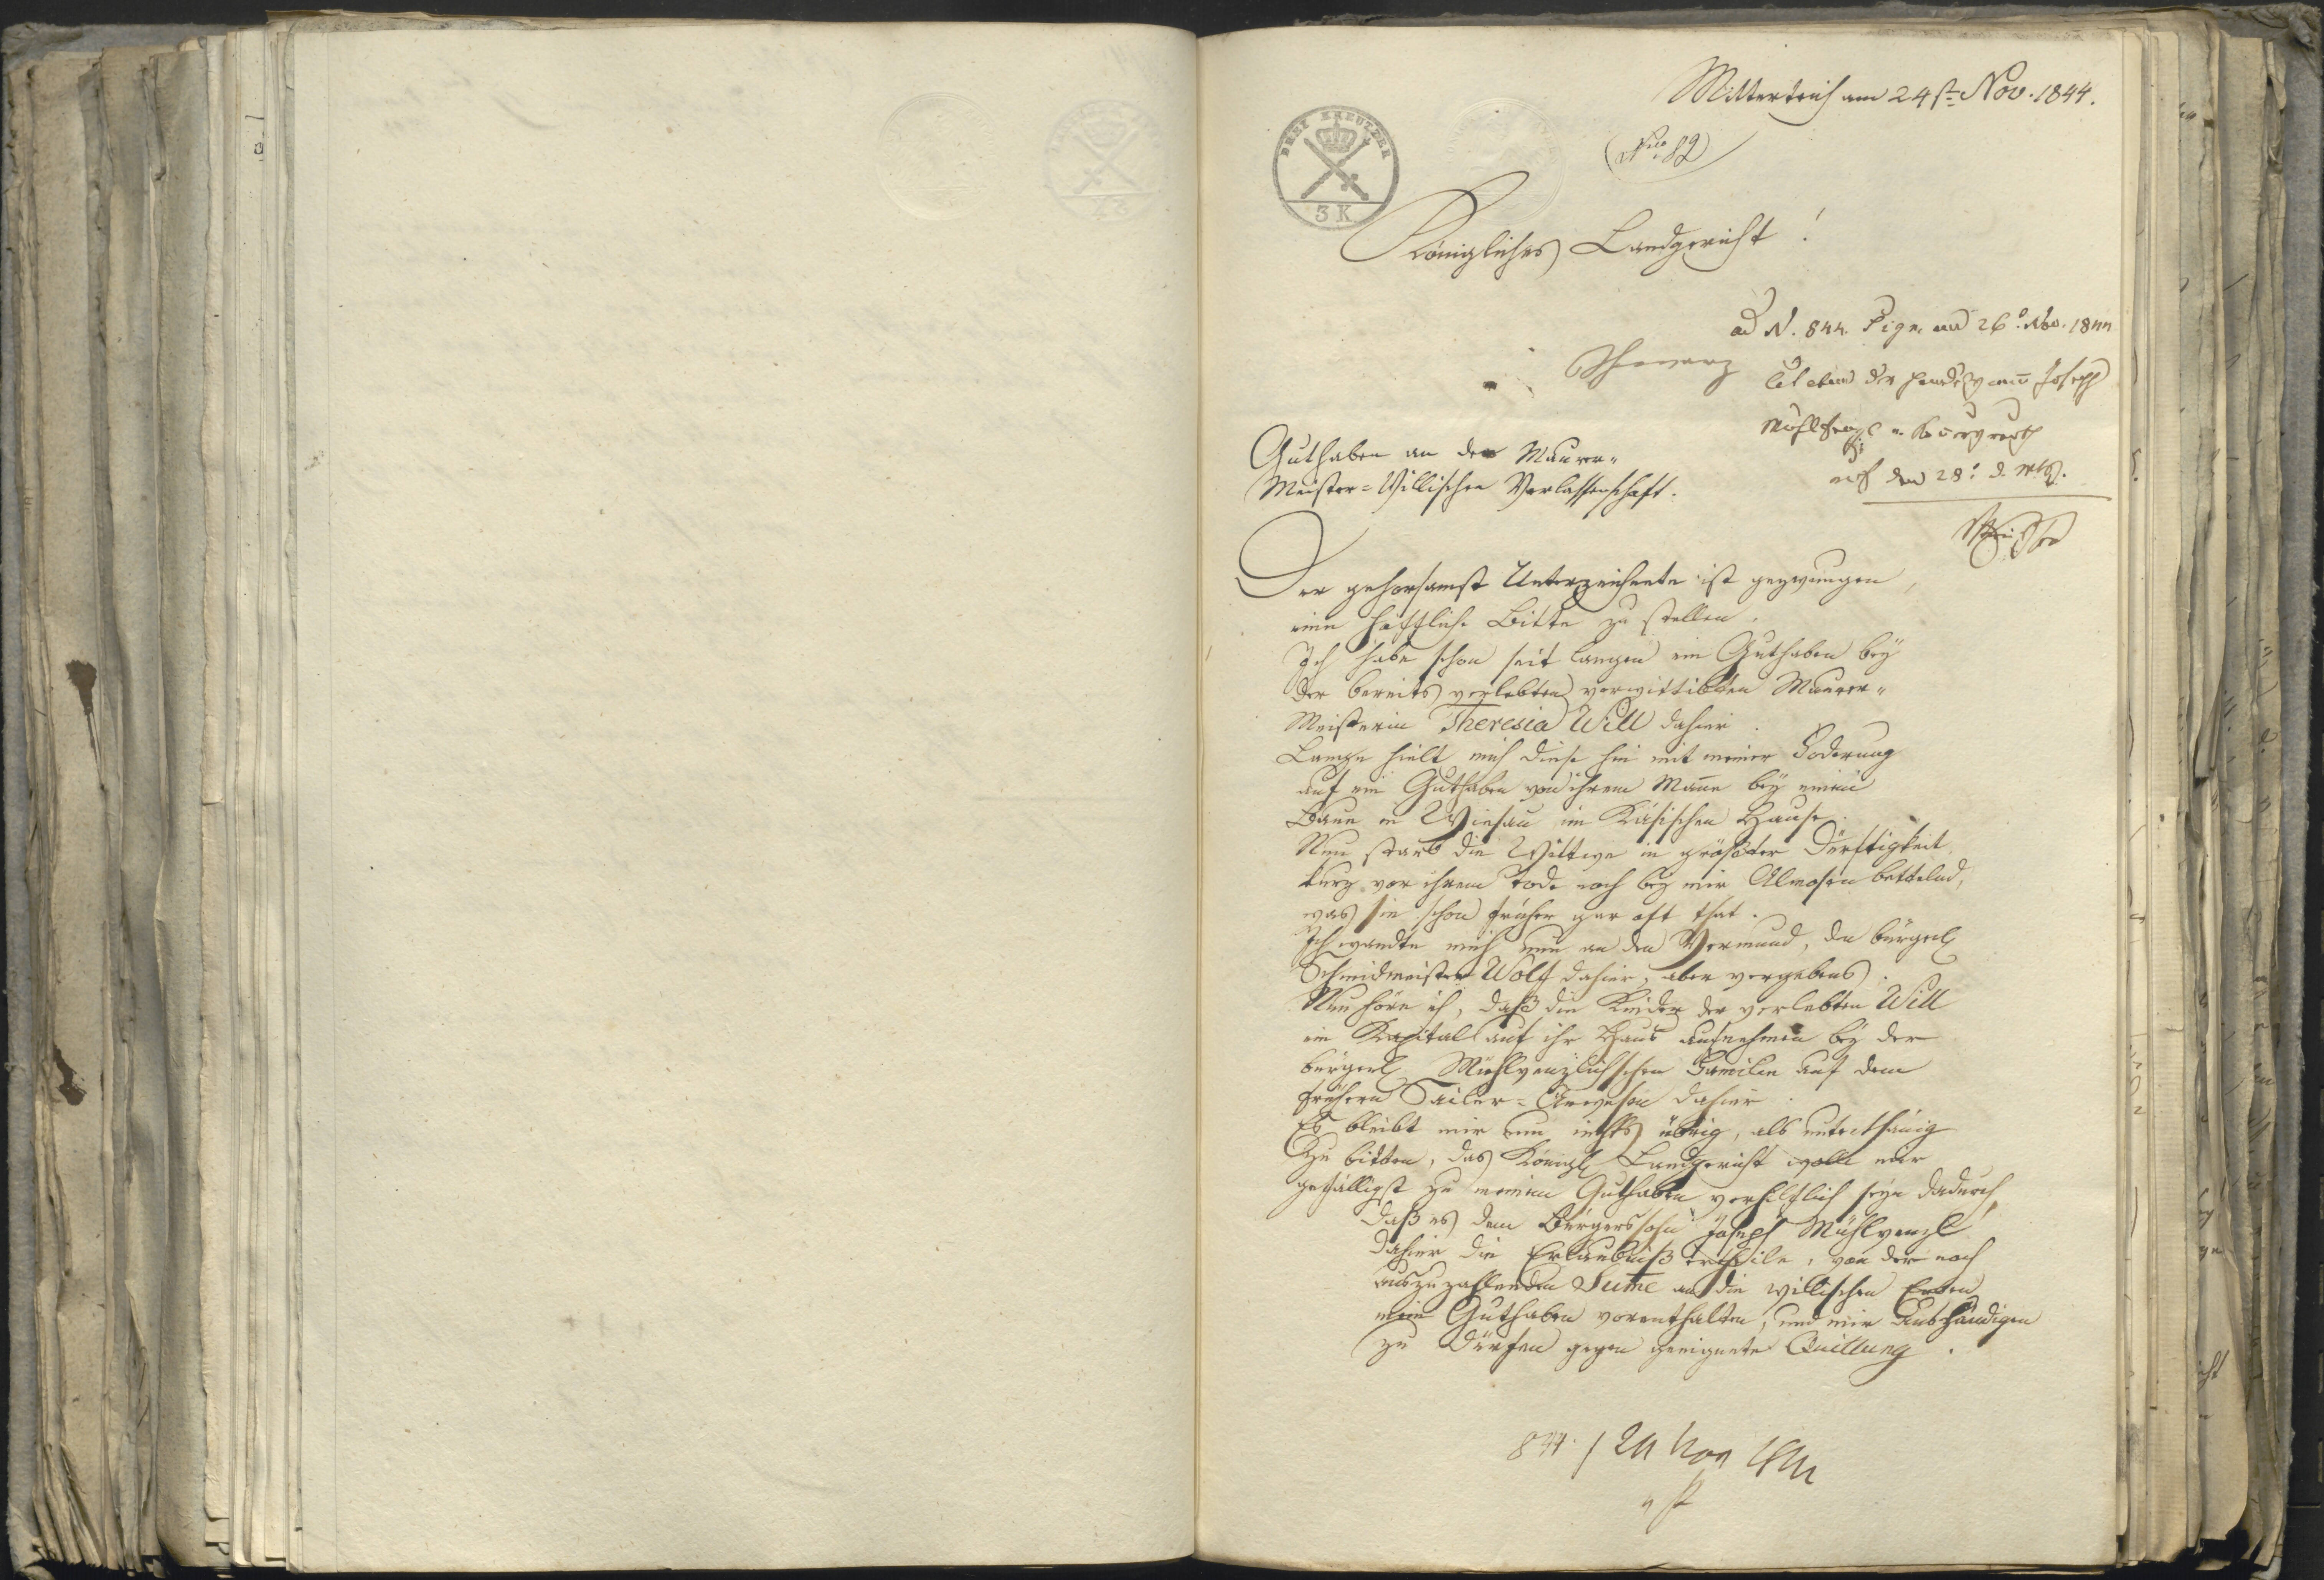 Mitterteich am 24st. Nov. 1844.
DREI KREUTZER
3 K
(Nro 82)
Königliches Landgericht!
ad N. 844. Pign. am 26. Nov. 1844
der Joseph
Mühlvenzl
auf den 28. d. Mts.
Guthaben an der Maurer-
Meister-Willischen Verlassenschaft.
Der gehorsamst Unterzeichnete ist gezwungen,
eine höffliche Bitte zu stellen.
Ich habe schon seit langen ein Guthaben bey
der bereits verlebten verwittibten Maurer-
Meisterin Theresia Will dahier.
Lange hielt mich diese hin mit meiner Foderung
auf ein Guthaben von ihrem Mann bey einem
Baue in Wiesau im Käsischen Hause.
Nun starb die Wittwe in größter Dürftigkeit,
kurz vor ihrem Tode noch bey mir Almosen bettelnd,
was sie schon früher gar oft that.
Ich wandte mich nun an den Vormund, den bürgerl.
Schmidmeister Wolf dahier, aber vergebens.
Nun höre ich, daß die Kinder der verlebten Will
ein Kapital auf ihr Haus aufnehmen bey der
bürgerl. Mühlvenzlischen Familie auf dem
frühern Sailer-Anwesen dahier.
Es bleibt mir nun nichts übrig, als unterthänig
zu bitten, das Königl. Landgericht wolle mir
gefälligst zu meinem Guthaben verhilflich seyn dadurch,
daß es dem Bürgerssohn Joseph Mühlvenzl
dahier die Erlaubniß ertheile, von der noch
auszuzahlenden Sume an die willischen Erben
mein Guthaben vorenthalten, und mir aushändigen
zu dürfen gegen geeignete Quittung.
844. / 24 Nov 1844